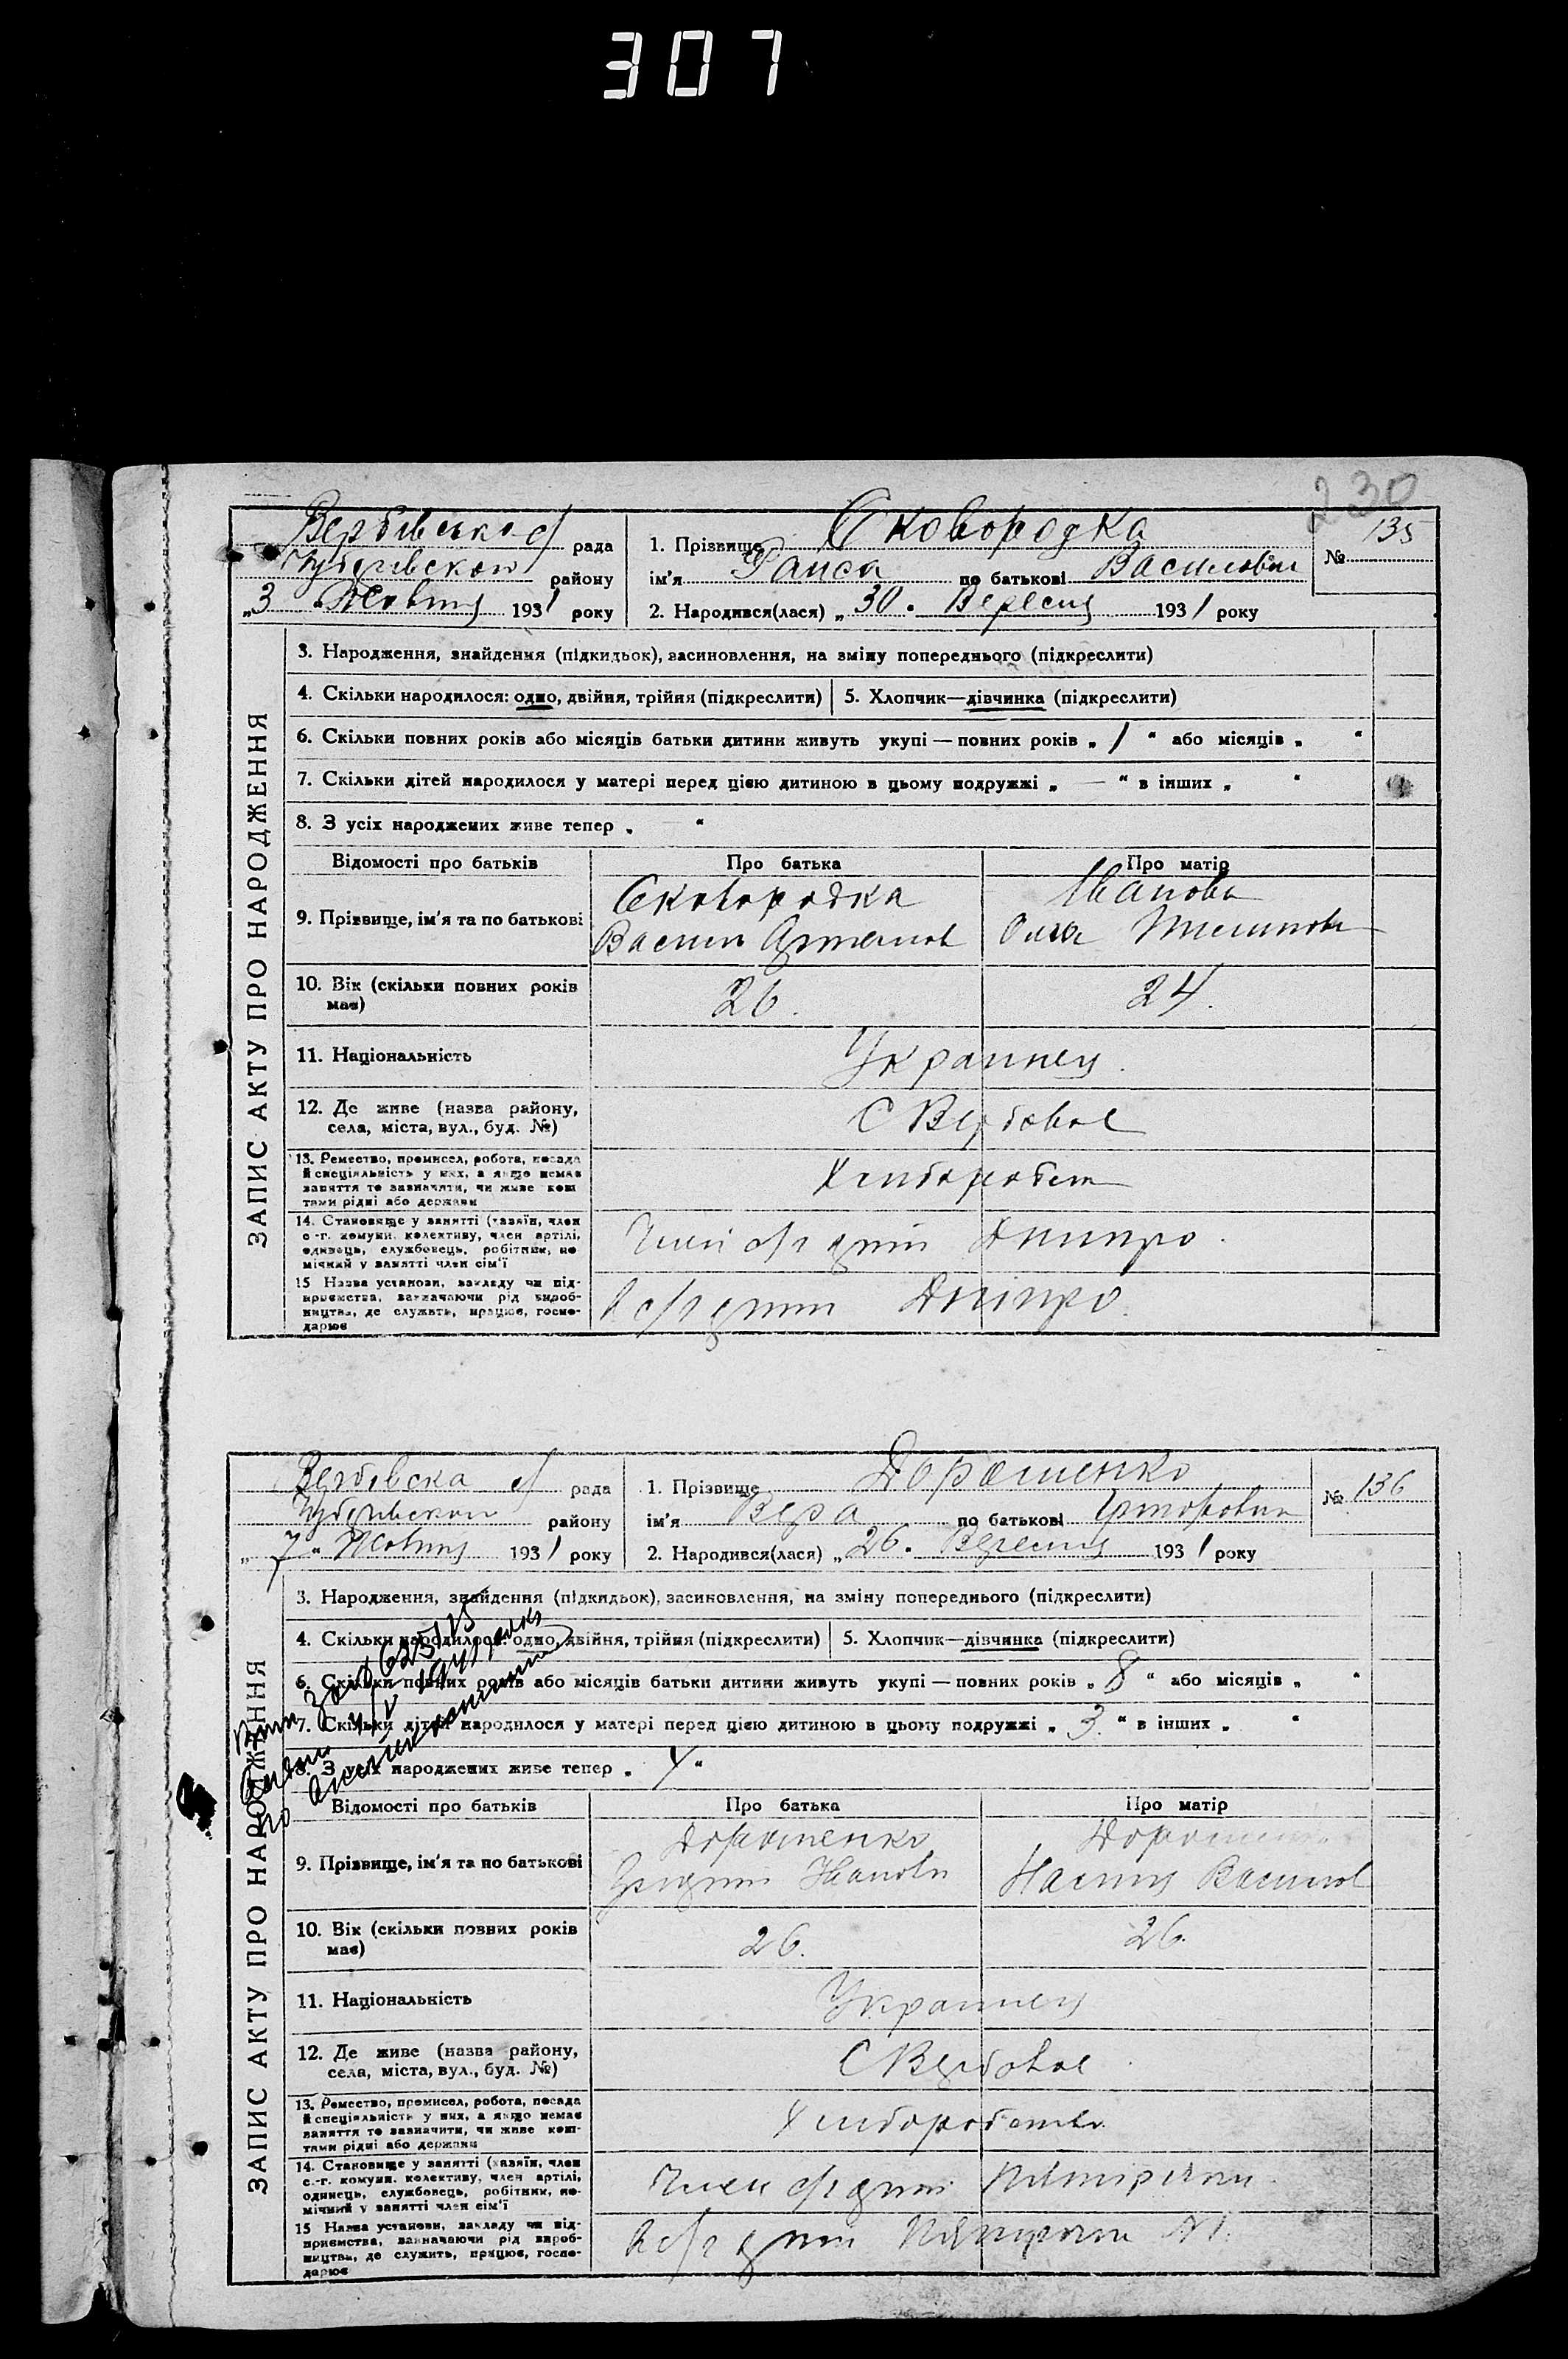 307
230
Вербівська с/ рада
Чубарівского району
„3 " Жовтня 1931 року
1. Прізвище Сковородка
№ 135
ім'я Раиса по батькові Василовна
2. Народився(лася) „30. Вересня 1931 року
ЗАПИС АКТУ ПРО НАРОДЖЕННЯ
3. Народження, знайдення (підкидьок), засиновлення, на зміну попереднього (підкреслити)
4. Скільки народилося: одно, двійня, трійня (підкреслити) 5. Хлопчик—дівчинка (підкреслити)
6. Скільки повних років або місяців батьки дитини живуть укупі — повних років „ 1 " або місяців „ "
7. Скільки дітей народилося у матері перед цією дитиною в цьому подружжі „ — " в інших „ "
8. З усіх народжених живе тепер „ "
Відомості про батьків Про батька Про матір
9. Прізвище, ім'я та по батькові
Сковородка
Васил Артемов
Іванова
Олга
10. Вік (скільки повних років має) 26. 24.
11. Національність Украинец
12. Де живе (назва району, села, міста, вул., буд. №) С Вербовое
13. Ремество, промисел, робота, посада
й спеціяльність у них, а якщо немає
заняття то зазначити, чи живе кош-
тами рідні або держави
Хлиборобст
14. Становище у занятті (хазяїн, член
с.-г. комуни, колективу, член артілі,
одинець, службовець, робітник, по-
мічний у занятті член сім'ї
Член с/г артіл Днипро.
15 Назва установи, закладу чи під-
приємства, зазначаючи рід вироб-
ництва, де служить, працює, госпо-
дарює
В с/г артіл Дніпро.
Вербівска с/ рада
Чубарівского району
„7" Жовтня 1931 року
1. Прізвище Дорошенко
№ 136
ім'я Вера по батькові
2. Народився(лася) „26. Вересня 1931 року
ЗАПИС АКТУ ПРО НАРОДЖЕННЯ
3. Народження, знайдення (підкидьок), засиновлення, на зміну попереднього (підкреслити)
4. Скільки народилося: одно, двійня, трійня (підкреслити) 5. Хлопчик—дівчинка (підкреслити)
6. Скільки повних років або місяців батьки дитини живуть укупі — повних років „ 8 " або місяців „ "
7. Скільки дітей народилося у матері перед цією дитиною в цьому подружжі „ 3. " в інших „ "
8. З усіх народжених живе тепер „ 4 "
Відомості про батьків Про батька Про матір
9. Прізвище, ім'я та по батькові
Дорошенко
Иванови
Дорошен
Настя Василов
10. Вік (скільки повних років має) 26. 26.
11. Національність Украинец
12. Де живе (назва району, села, міста, вул., буд. №) С Вербовое
13. Ремество, промисел, робота, посада
й спеціяльність у них, а якщо немає
заняття то зазначити, чи живе кош-
тами рідні або держави
Хлиборобство
14. Становище у занятті (хазяїн, член
с.-г. комуни, колективу, член артілі,
одинець, службовець, робітник, по-
мічний у занятті член сім'ї
Член с/г артіл
15 Назва установи, закладу чи під-
приємства, зазначаючи рід вироб-
ництва, де служить, працює, госпо-
дарює
В с/г артіл